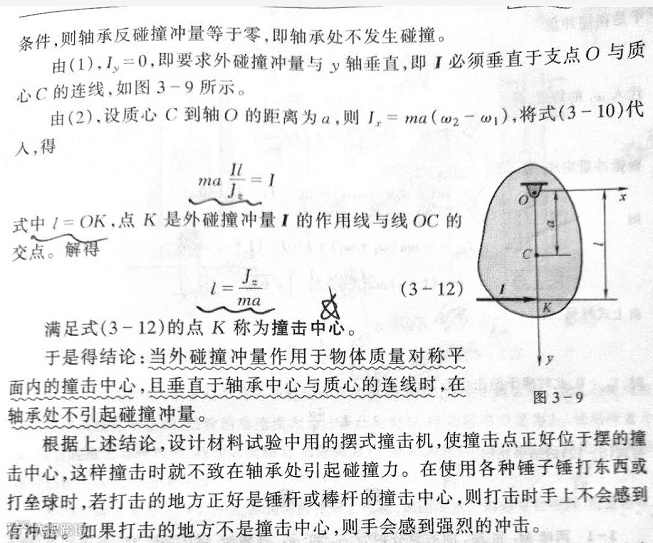 条件,则轴承反碰撞冲量等于零,即轴承处不发生碰撞。
由(1),I_y=0,即要求外碰撞冲量与 y 轴垂直,即 I 必须垂直于支点 O 与质
心 C 的连线,如图 3-9 所示。
由(2),设质心 C 到轴 O 的距离为 a,则 I_x = ma(ω₂-ω₁),将式(3-10)代
入,得
ma Il/J_z = I
式中 l=OK,点 K 是外碰撞冲量 I 的作用线与线 OC 的
交点。解得
l = J_z/ma (3-12)
满足式(3-12)的点 K 称为撞击中心。
于是得结论:当外碰撞冲量作用于物体质量对称平
面内的撞击中心,且垂直于轴承中心与质心的连线时,在
轴承处不引起碰撞冲量。
O
x
a
l
C
I
K
y
图 3-9
根据上述结论,设计材料试验中用的摆式撞击机,使撞击点正好位于摆的撞
击中心,这样撞击时就不致在轴承处引起碰撞力。在使用各种锤子锤打东西或
打垒球时,若打击的地方正好是锤杆或棒杆的撞击中心,则打击时手上不会感到
有冲击。如果打击的地方不是撞击中心,则手会感到强烈的冲击。